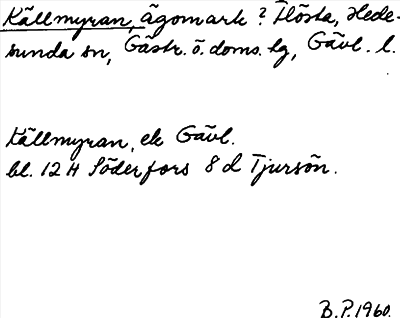 Källmyran, ägomark? Flösta, Hede-
sunda sn, Gästr. ö. doms. lg, Gävl. l.
Källmyran, ek Gävl.
bl. 12 H Söderfors 8 d Tjursön.
B.P. 1960.